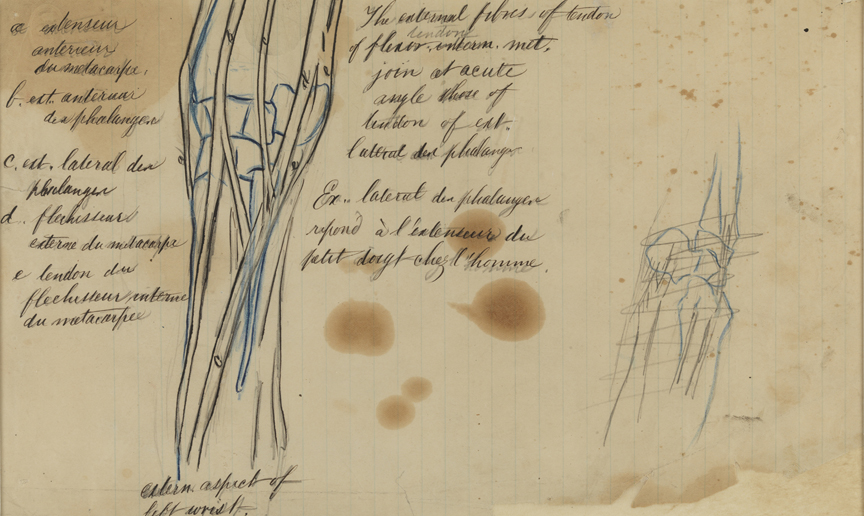 a extenseur
antérieur
du metacarpe.
b. ext. anterieur
des phalanges
c. ext. lateral des
phalanges
d. flechisseur
externe du metacarpe
e tendon du
flechisseur interne
du metacarpe
The external fibres of tendon
tendon
of flexor. interm. met.
join at acute
angle those of
tendon of ext.
lateral des phalanges
Ex.. lateral des phalanges
repond à l'extenseur du
petit doigt chez l'homme.
b
c
d
e
a
e
c
extern. aspect of
left wrist.